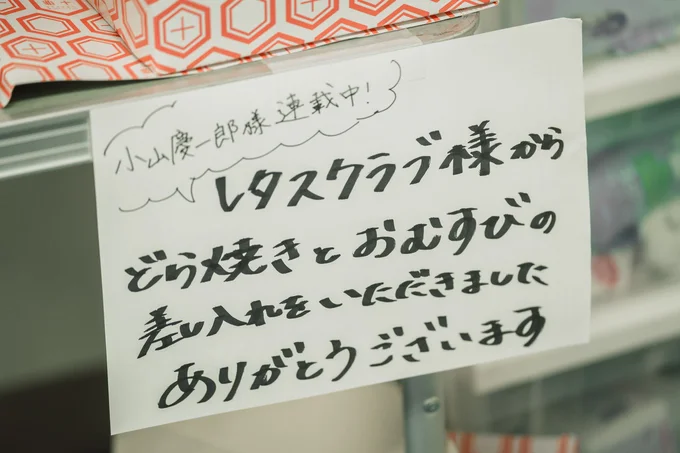 小山慶一郎様連載中!
レタスクラブ様から
どら焼きとおむすびの
差し入れをいただきました
ありがとうございます